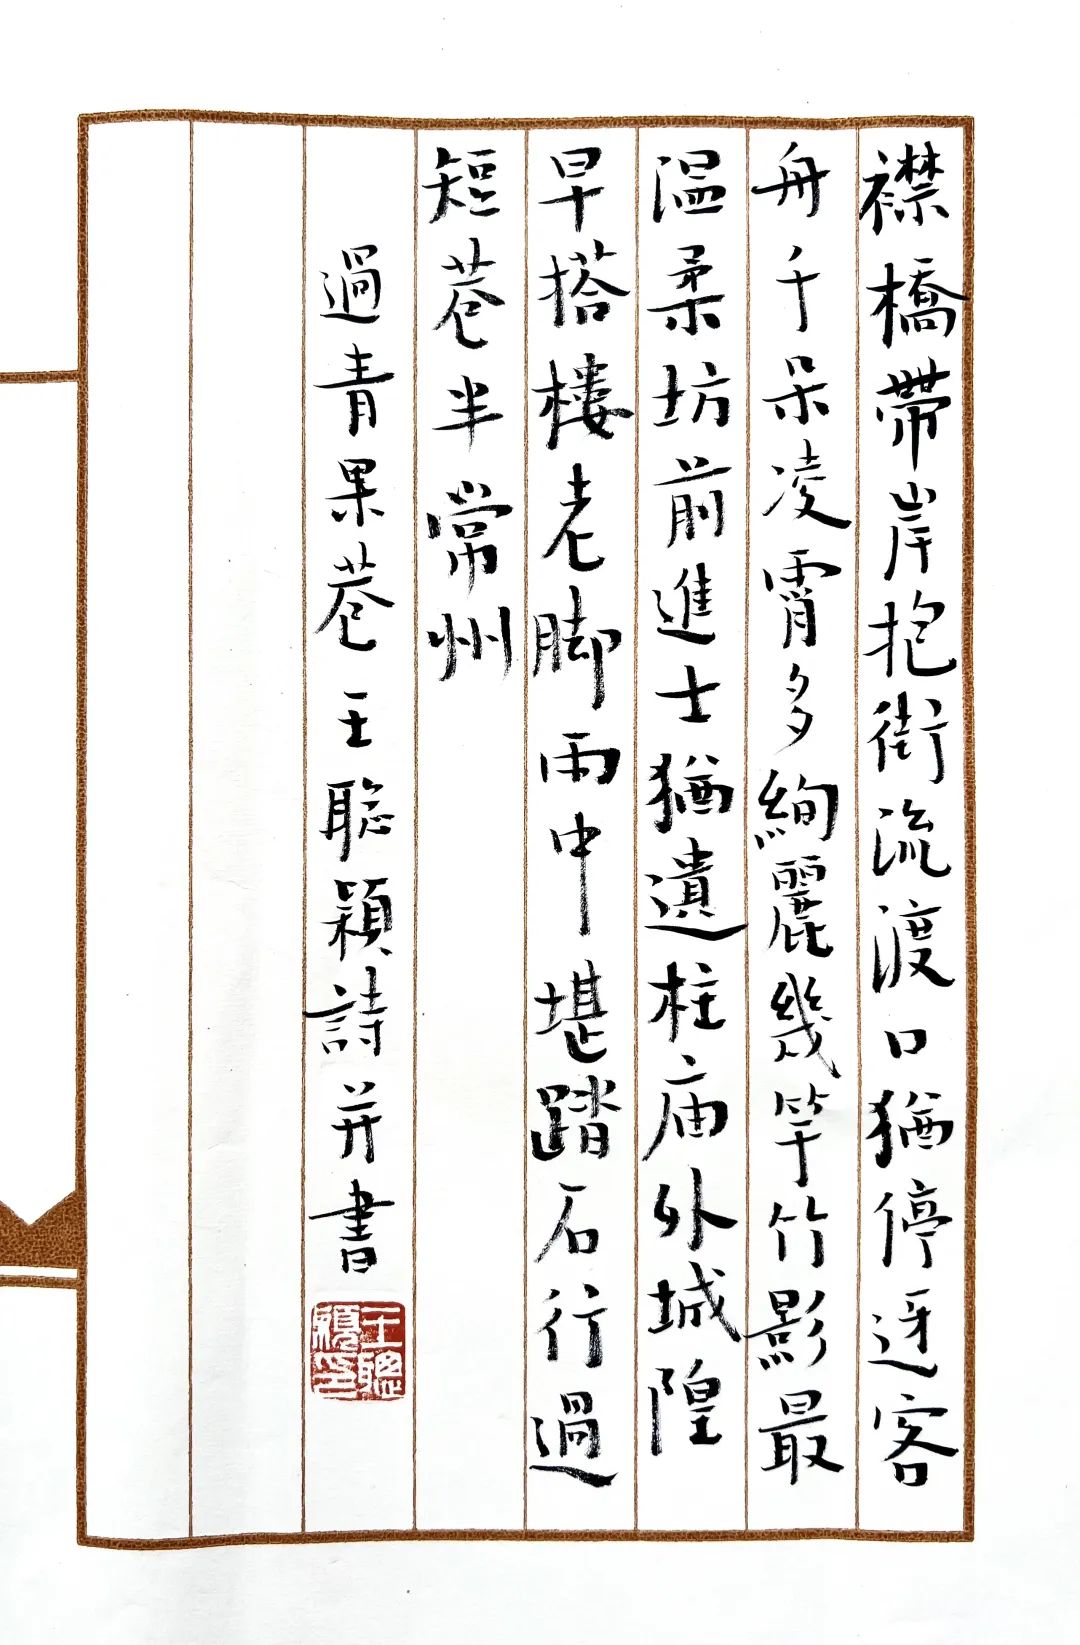 襟橋帶岸抱街流渡口猶停迓客
舟千朵凌霄多絢麗幾竿竹影最
温柔坊前進士猶遺柱庙外城隍
早搭樓老脚雨中堪踏石行過
短巷半常州
過青果巷王聪穎詩并書
王聰穎印